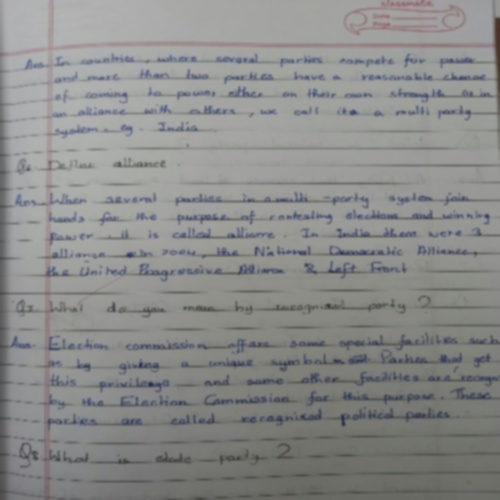 classmate
Date
Page
Ans. In countries, where several parties compete for power
and more than two parties have a reasonable chance
of coming to power either on their own strength or in
an alliance with others, we call it a multi party
system. eg. India
Q6 Define alliance.
Ans. When several parties in a multi-party system join
hands for the purpose of contesting elections and winning
power, it is called alliance. In India there were 3
alliance in 2004, the National Democratic Alliance,
the United Progressive Alliance & Left Front
Q7. What do you mean by recognised party?
Ans. Election commission offers some special facilities such
as by giving a unique symbol Parties that get
this privilege and some other facilities are recogn
by the Election Commission for this purpose. These
parties are called recognised political parties.
Q8 What is state party?